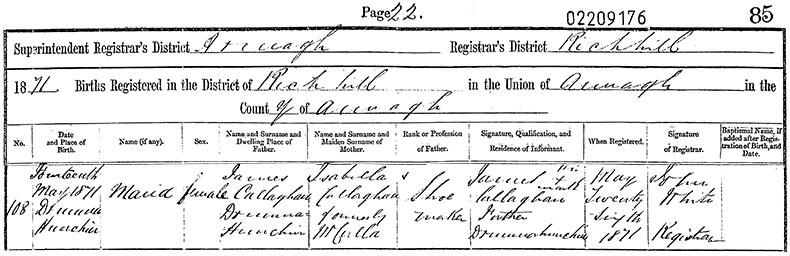 Page 22. 02209176 85
Superintendent Registrar's District Armagh Registrar's District Richhill
1871 Births Registered in the District of Richhill in the Union of Armagh in the
County of Armagh
No. Date and Place of Birth. Name (if any). Sex. Name and Surname and Dwelling Place of Father. Name and Surname and Maiden Surname of Mother. Rank or Profession of Father. Signature, Qualification, and Residence of Informant. When Registered. Signature of Registrar. Baptismal Name, if added after Registration of Birth, and Date.
108
Fourteenth
May 1871
Maria
female
James
Callaghan
Isabella
Callaghan
formerly
McCulla
Shoe
maker
James his
Callaghan mark
Father
May
Twenty
Sixth
1871
John
White
Registrar